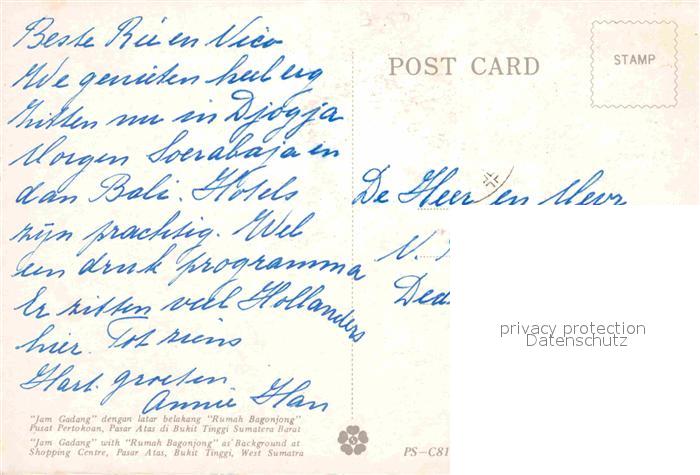 Beste Rie en Nico
We genieten heel erg
Zitten nu in Djogja
Morgen Soerabaja en
dan Bali. Hotels
zijn prachtig. Wel
een druk programma
Er zitten veel Hollanders
hier. Tot ziens
Hart. groeten
Annie Han
"Jam Gadang" dengan latar belakang "Rumah Bagonjong"
Pusat Pertokoan, Pasar Atas di Bukit Tinggi Sumatera Barat
"Jam Gadang" with "Rumah Bagonjong" as Background at
Shopping Centre, Pasar Atas, Bukit Tinggi, West Sumatra
POST CARD
STAMP
De Heer en Mevr
N.
Ded
privacy protection
Datenschutz
PS-C81